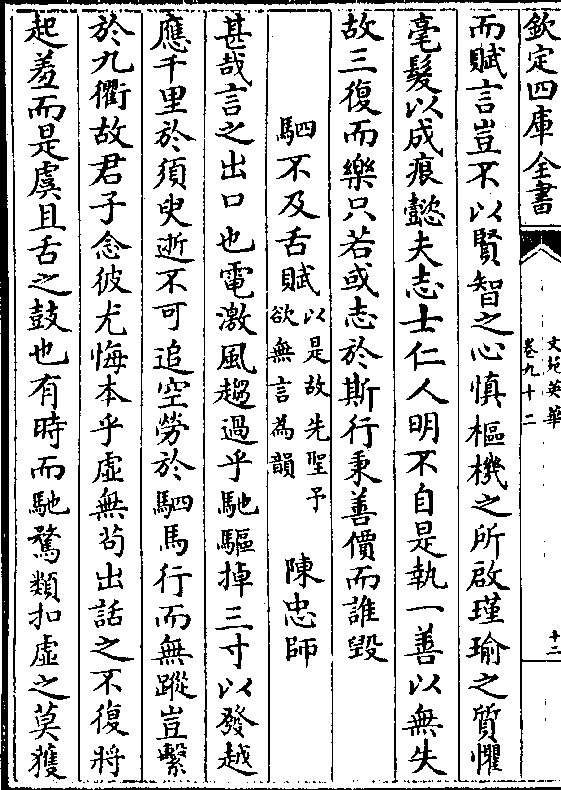 欽定四庫全書
文苑英華
卷九十二
十二
而賦言豈不以賢智之心慎樞機之所啟瑾瑜之質懼
毫髮以成痕懿夫志士仁人明不自是執一善以無失
故三復而樂只若或志於斯行秉善價而誰毀
駟不及舌賦以是故先聖予欲無言為韻 陳忠師
甚哉言之出口也電激風趨過乎馳驅掉三寸以發越
應千里於須臾逝不可追空勞於駟馬行而無蹤豈繫
於九衢故君子念彼尤悔本乎虛無苟出話之不復將
起羞而是虞且舌之鼓也有時而馳騖類扣虛之莫獲